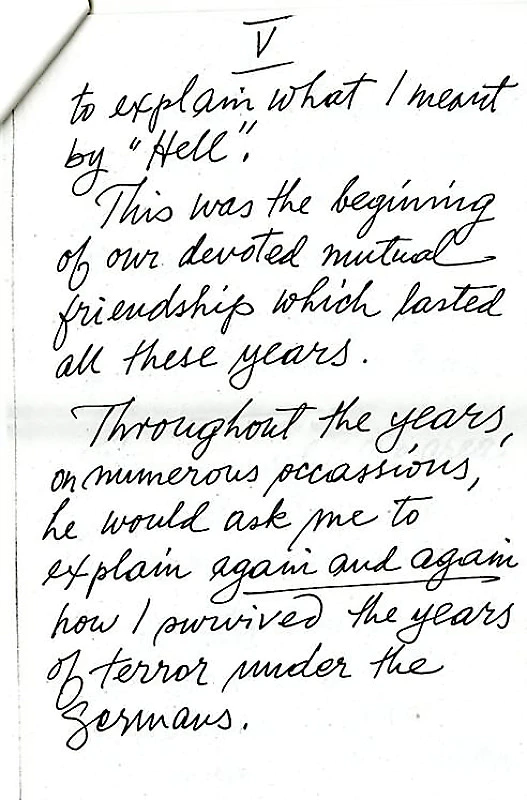 V
to explain what I meant
by "Hell".
This was the beginning
of our devoted mutual
friendship which lasted
all these years.
Throughout the years,
on numerous occassions,
he would ask me to
explain again and again
how I survived the years
of terror under the
Germans.